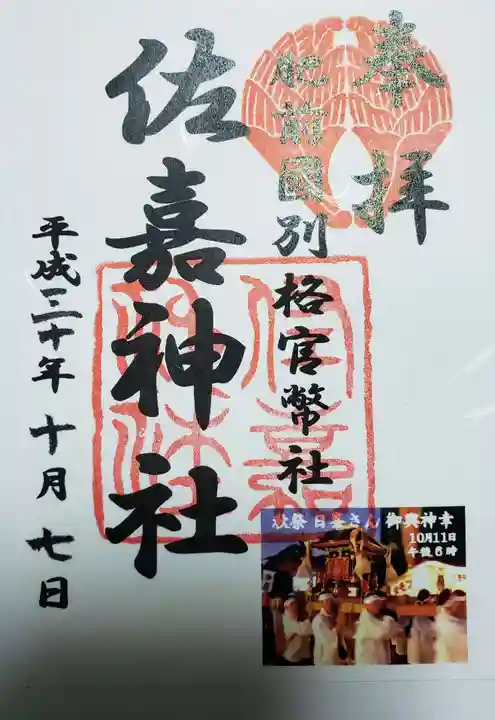 奉拝
肥前國別格官幣社
佐嘉神社
平成三十年十月七日
秋祭 日峯さん 御輿神幸
10月11日
午後6時
佐嘉
神社